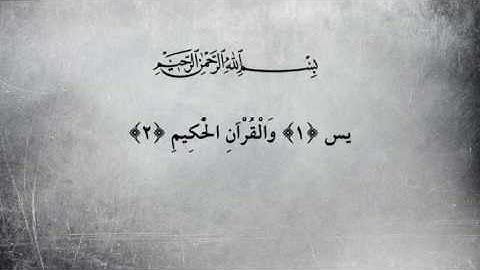 بِسْمِ اللهِ الرَّحْمٰنِ الرَّحِيْمِ
يس ﴿١﴾ وَالْقُرْآنِ الْحَكِيمِ ﴿٢﴾